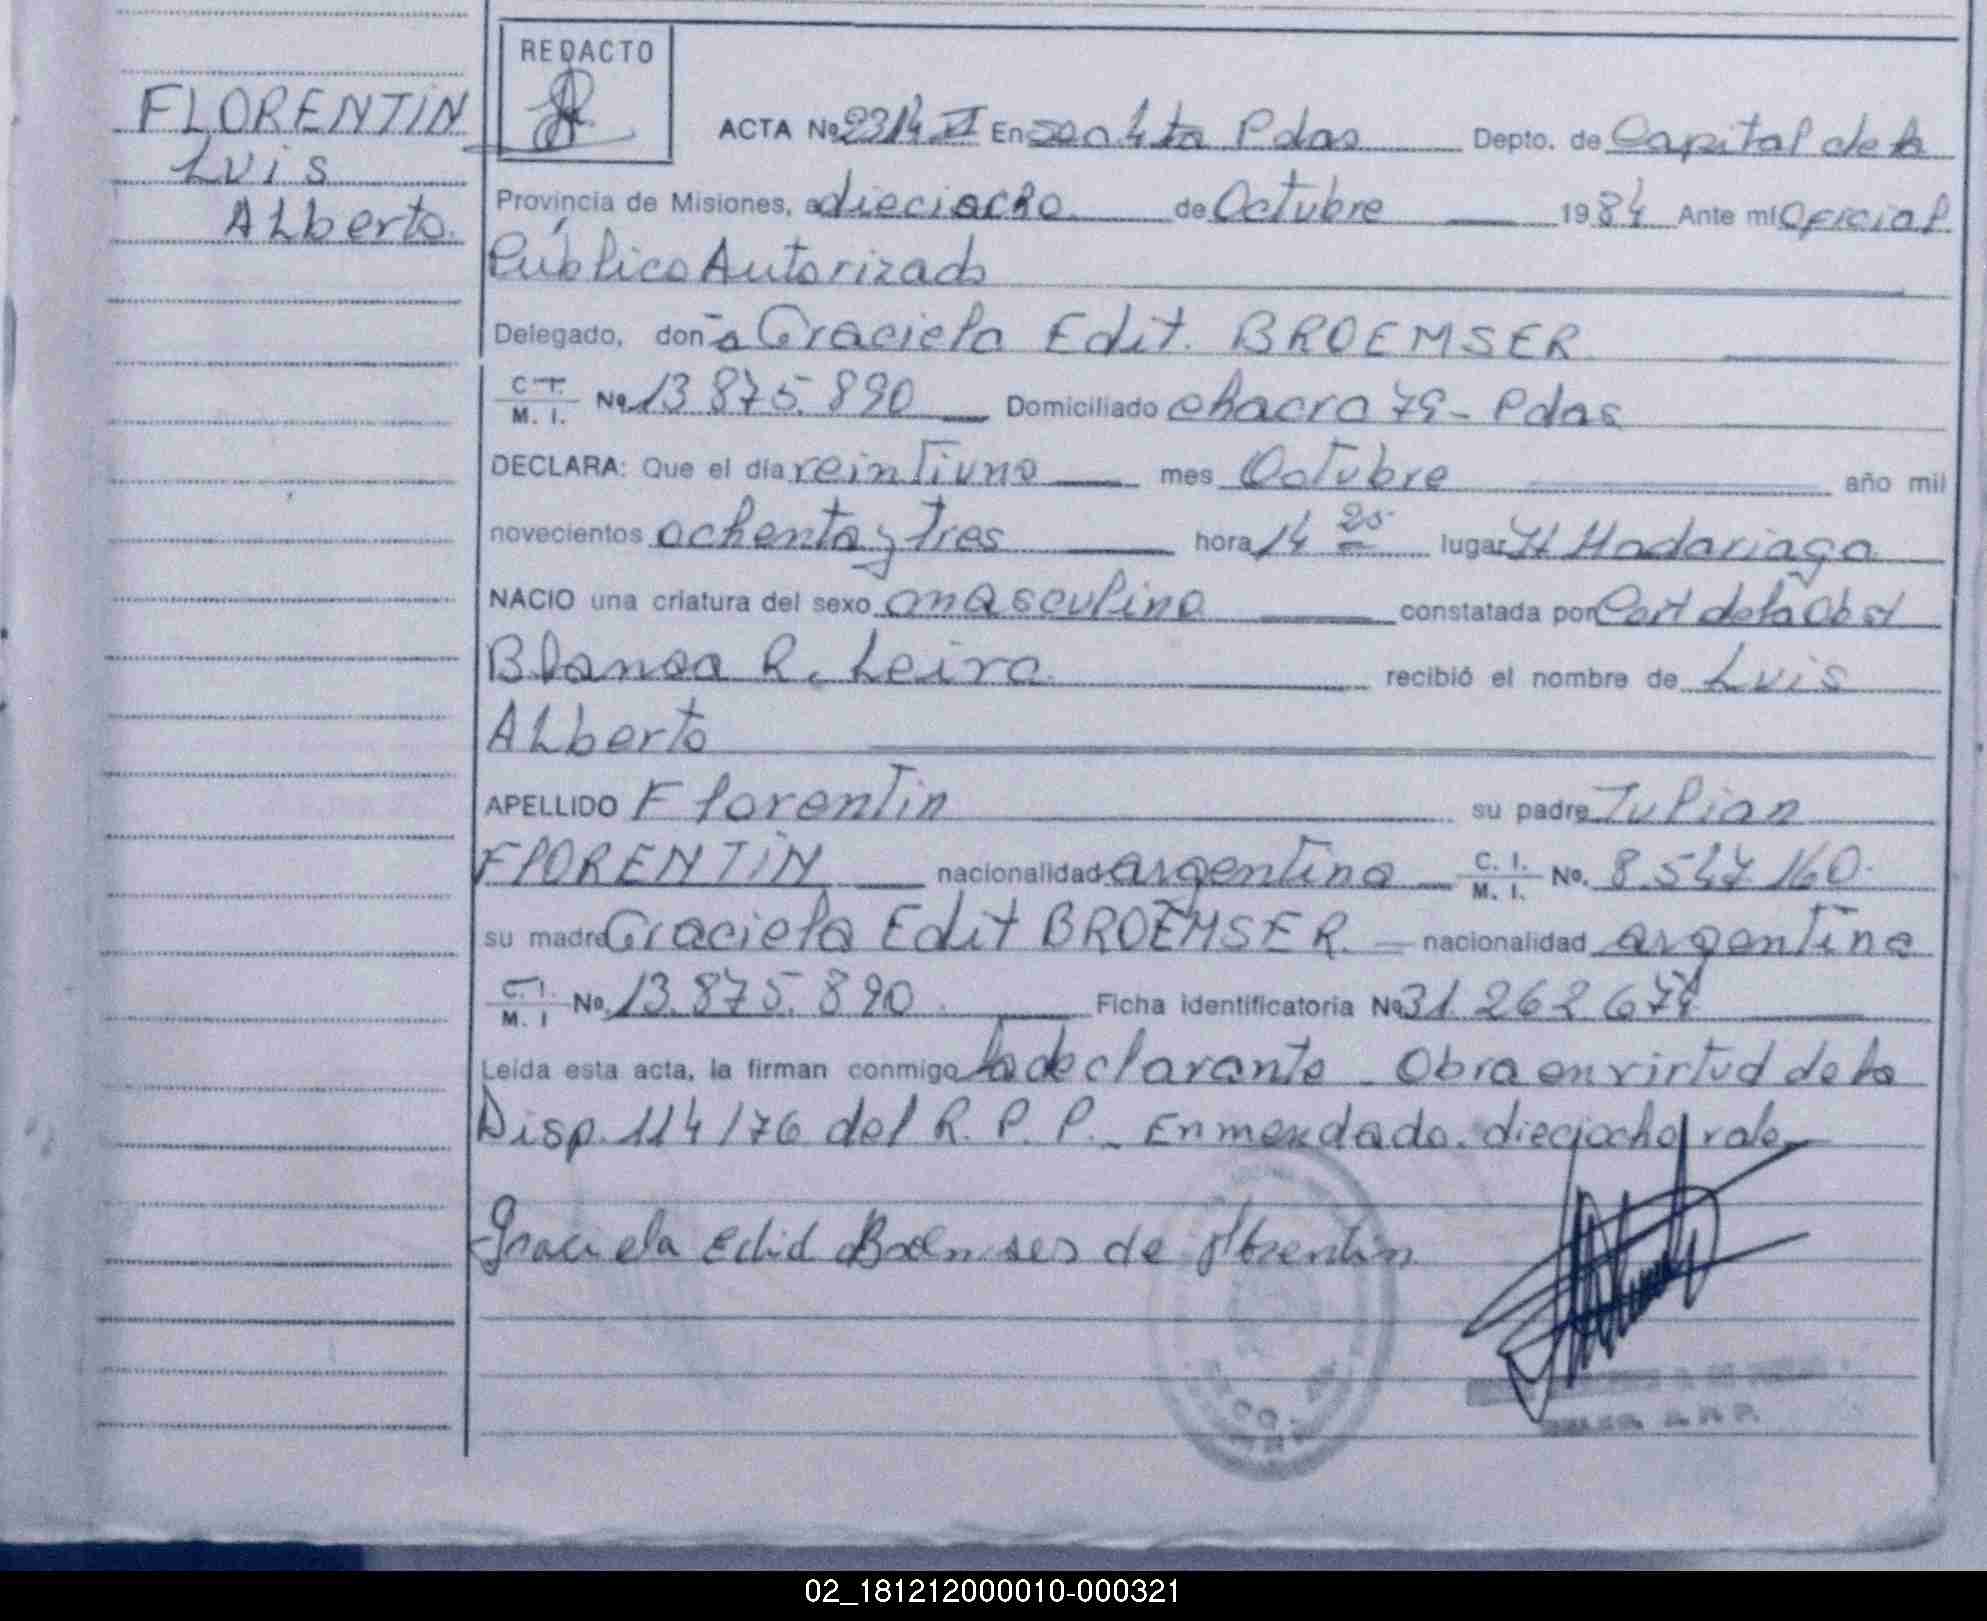 REDACTO
FLORENTIN
Luis
Alberto.
ACTA No 2314 VI En Secc 4ta Pdas Depto. de Capital de la
Provincia de Misiones, a dieciocho de Octubre 1984 Ante mí Oficial
Público Autorizado
Delegado, don~a Graciela Edit. BROEMSER
C. I. M. I. No 13.875.890 Domiciliado chacra 79- Pdas
DECLARA: Que el día veintiuno mes Octubre año mil
novecientos ochenta y tres hora 14 25 lugar H Madariaga
NACIO una criatura del sexo masculino constatada por Cert de la Obst
Blanca R. Leiva recibió el nombre de Luis
Alberto
APELLIDO Florentin su padre Julian
FLORENTIN nacionalidad argentina C. I. M. I. No. 8.547.160.
su madre Graciela Edit BROEMSER. nacionalidad argentina
C. I. M. I No. 13.875.890. Ficha identificatoria No 31.262.674
Leída esta acta, la firman conmigo la declarante. Obra en virtud de la
Disp. 114/76 del R. P. P. - Enmendado. dieciocho vale
Graciela Edid Broemser de Florentin
02_181212000010-000321